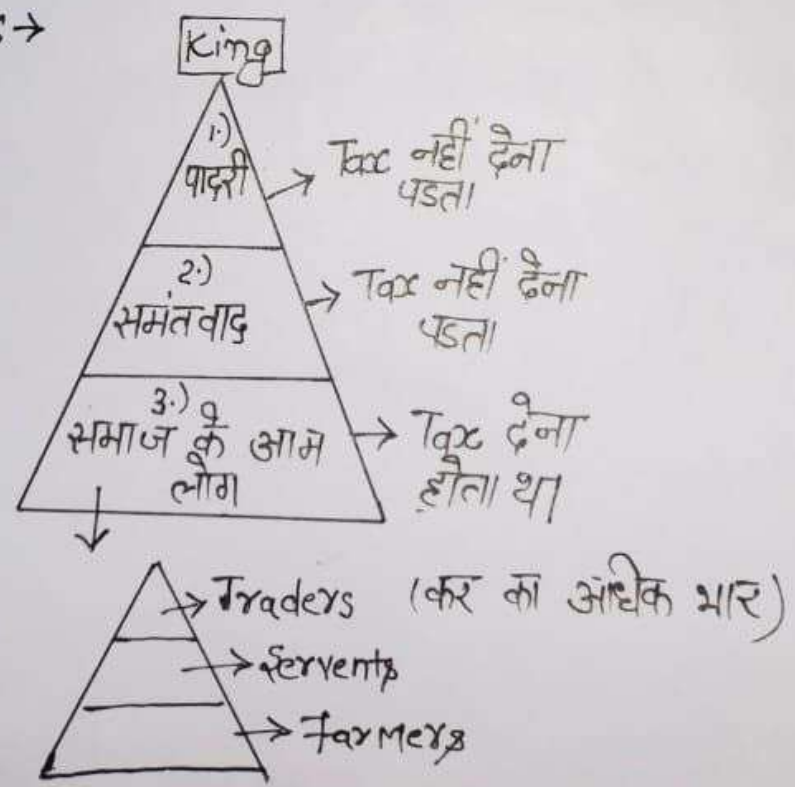 King
1.)
पादरी
Tax नहीं देना
पडता
2.)
समंतवाद
Tax नहीं देना
पडता
3.)
समाज के आम
लोग
Tax देना
होता था
Traders (कर का अधिक भार)
Servents
Farmers